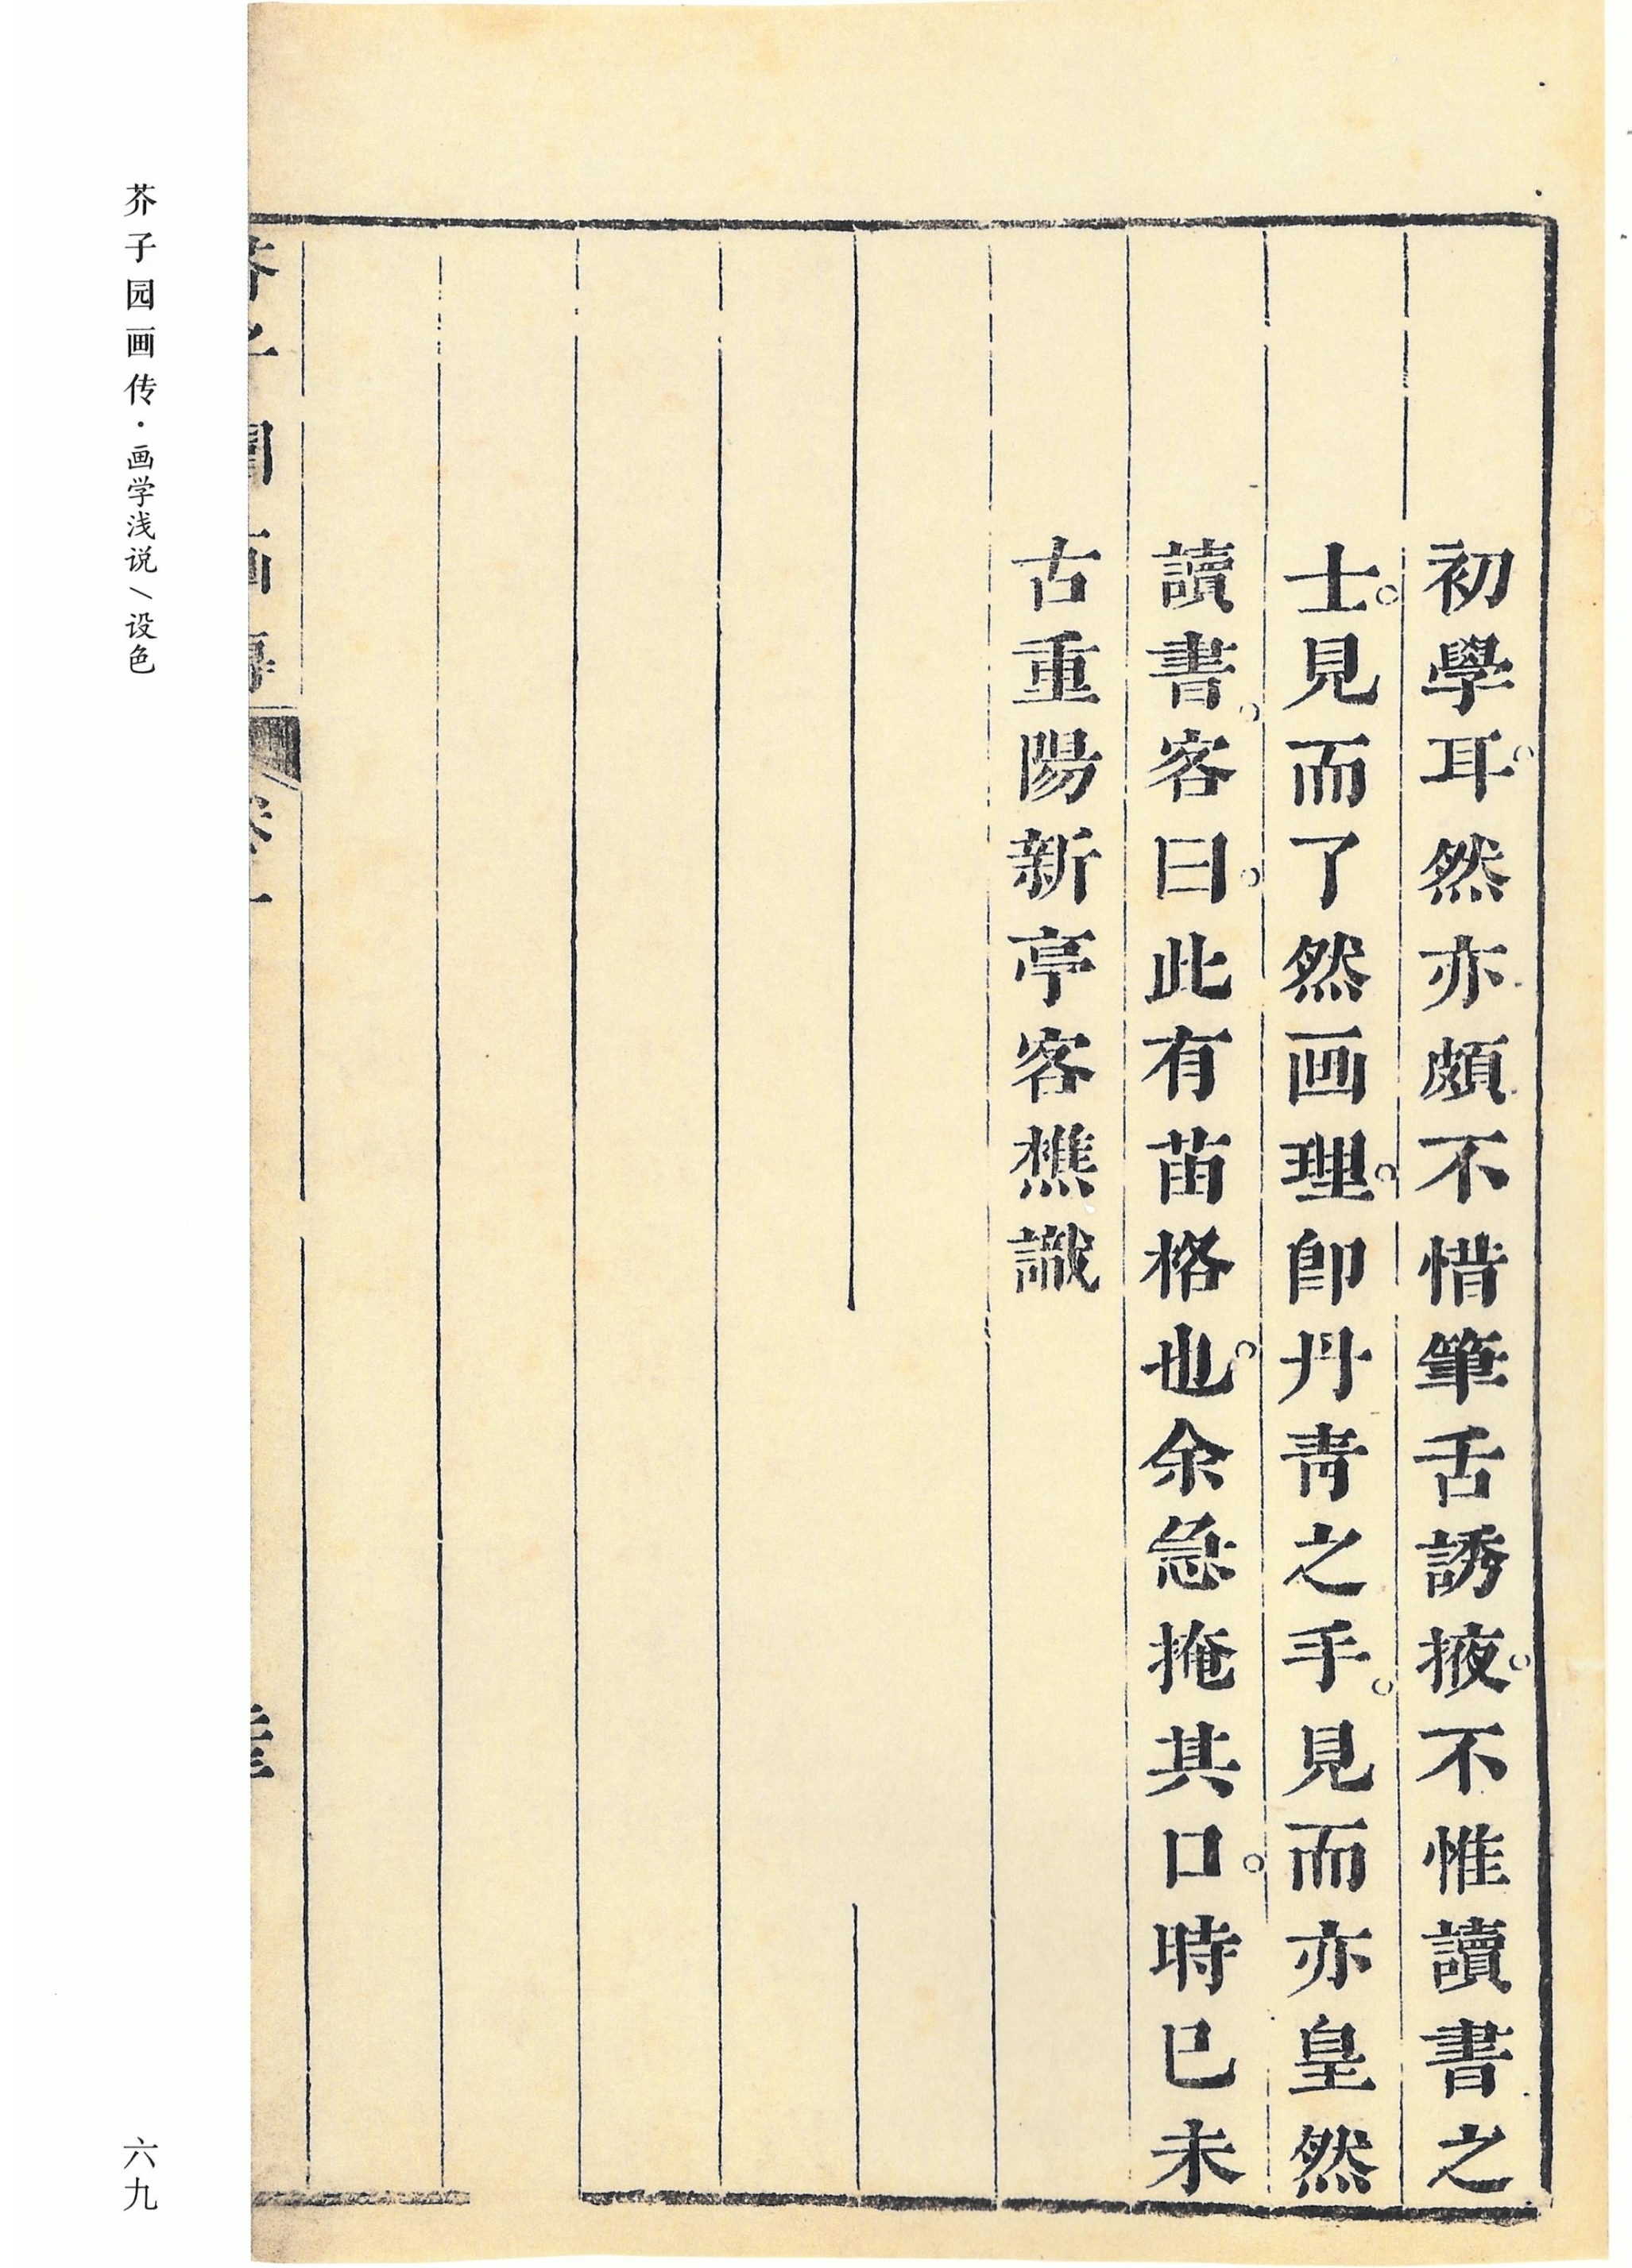 初學耳。然亦頗不惜筆舌誘掖。不惟讀書之
士。見而了然画理。卽丹青之手。見而亦皇然
讀書。客曰。此有苗格也。余急掩其口。時巳未
古重陽新亭客樵識
芥子园画传·画学浅说/设色
六九